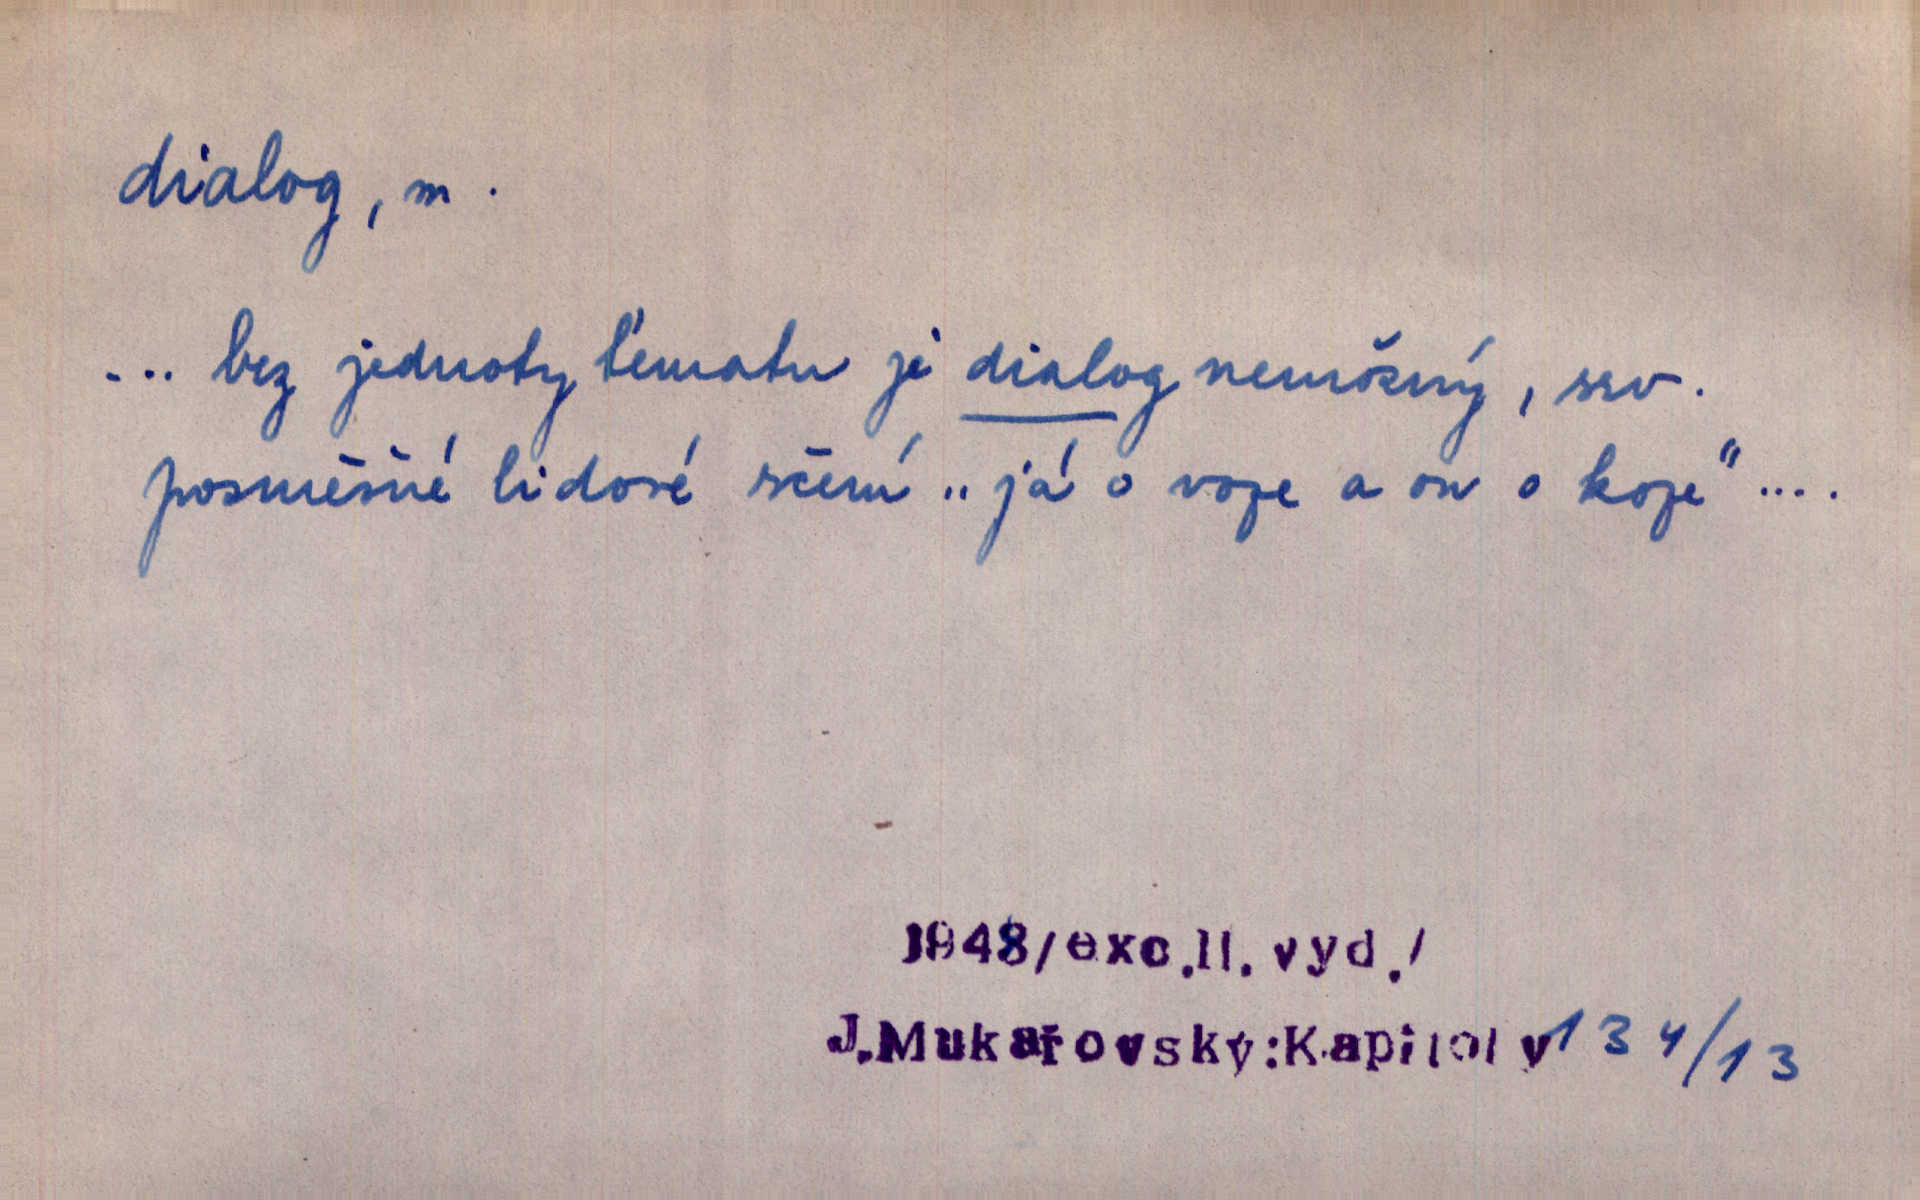 dialog, m.
... bez jednoty tématu je dialog nemožný, srv.
posměšné lidové rčení „já o voze a on o koze" ....
1948/exc.II.vyd./
J.Mukařovský:Kapitoly 134/13